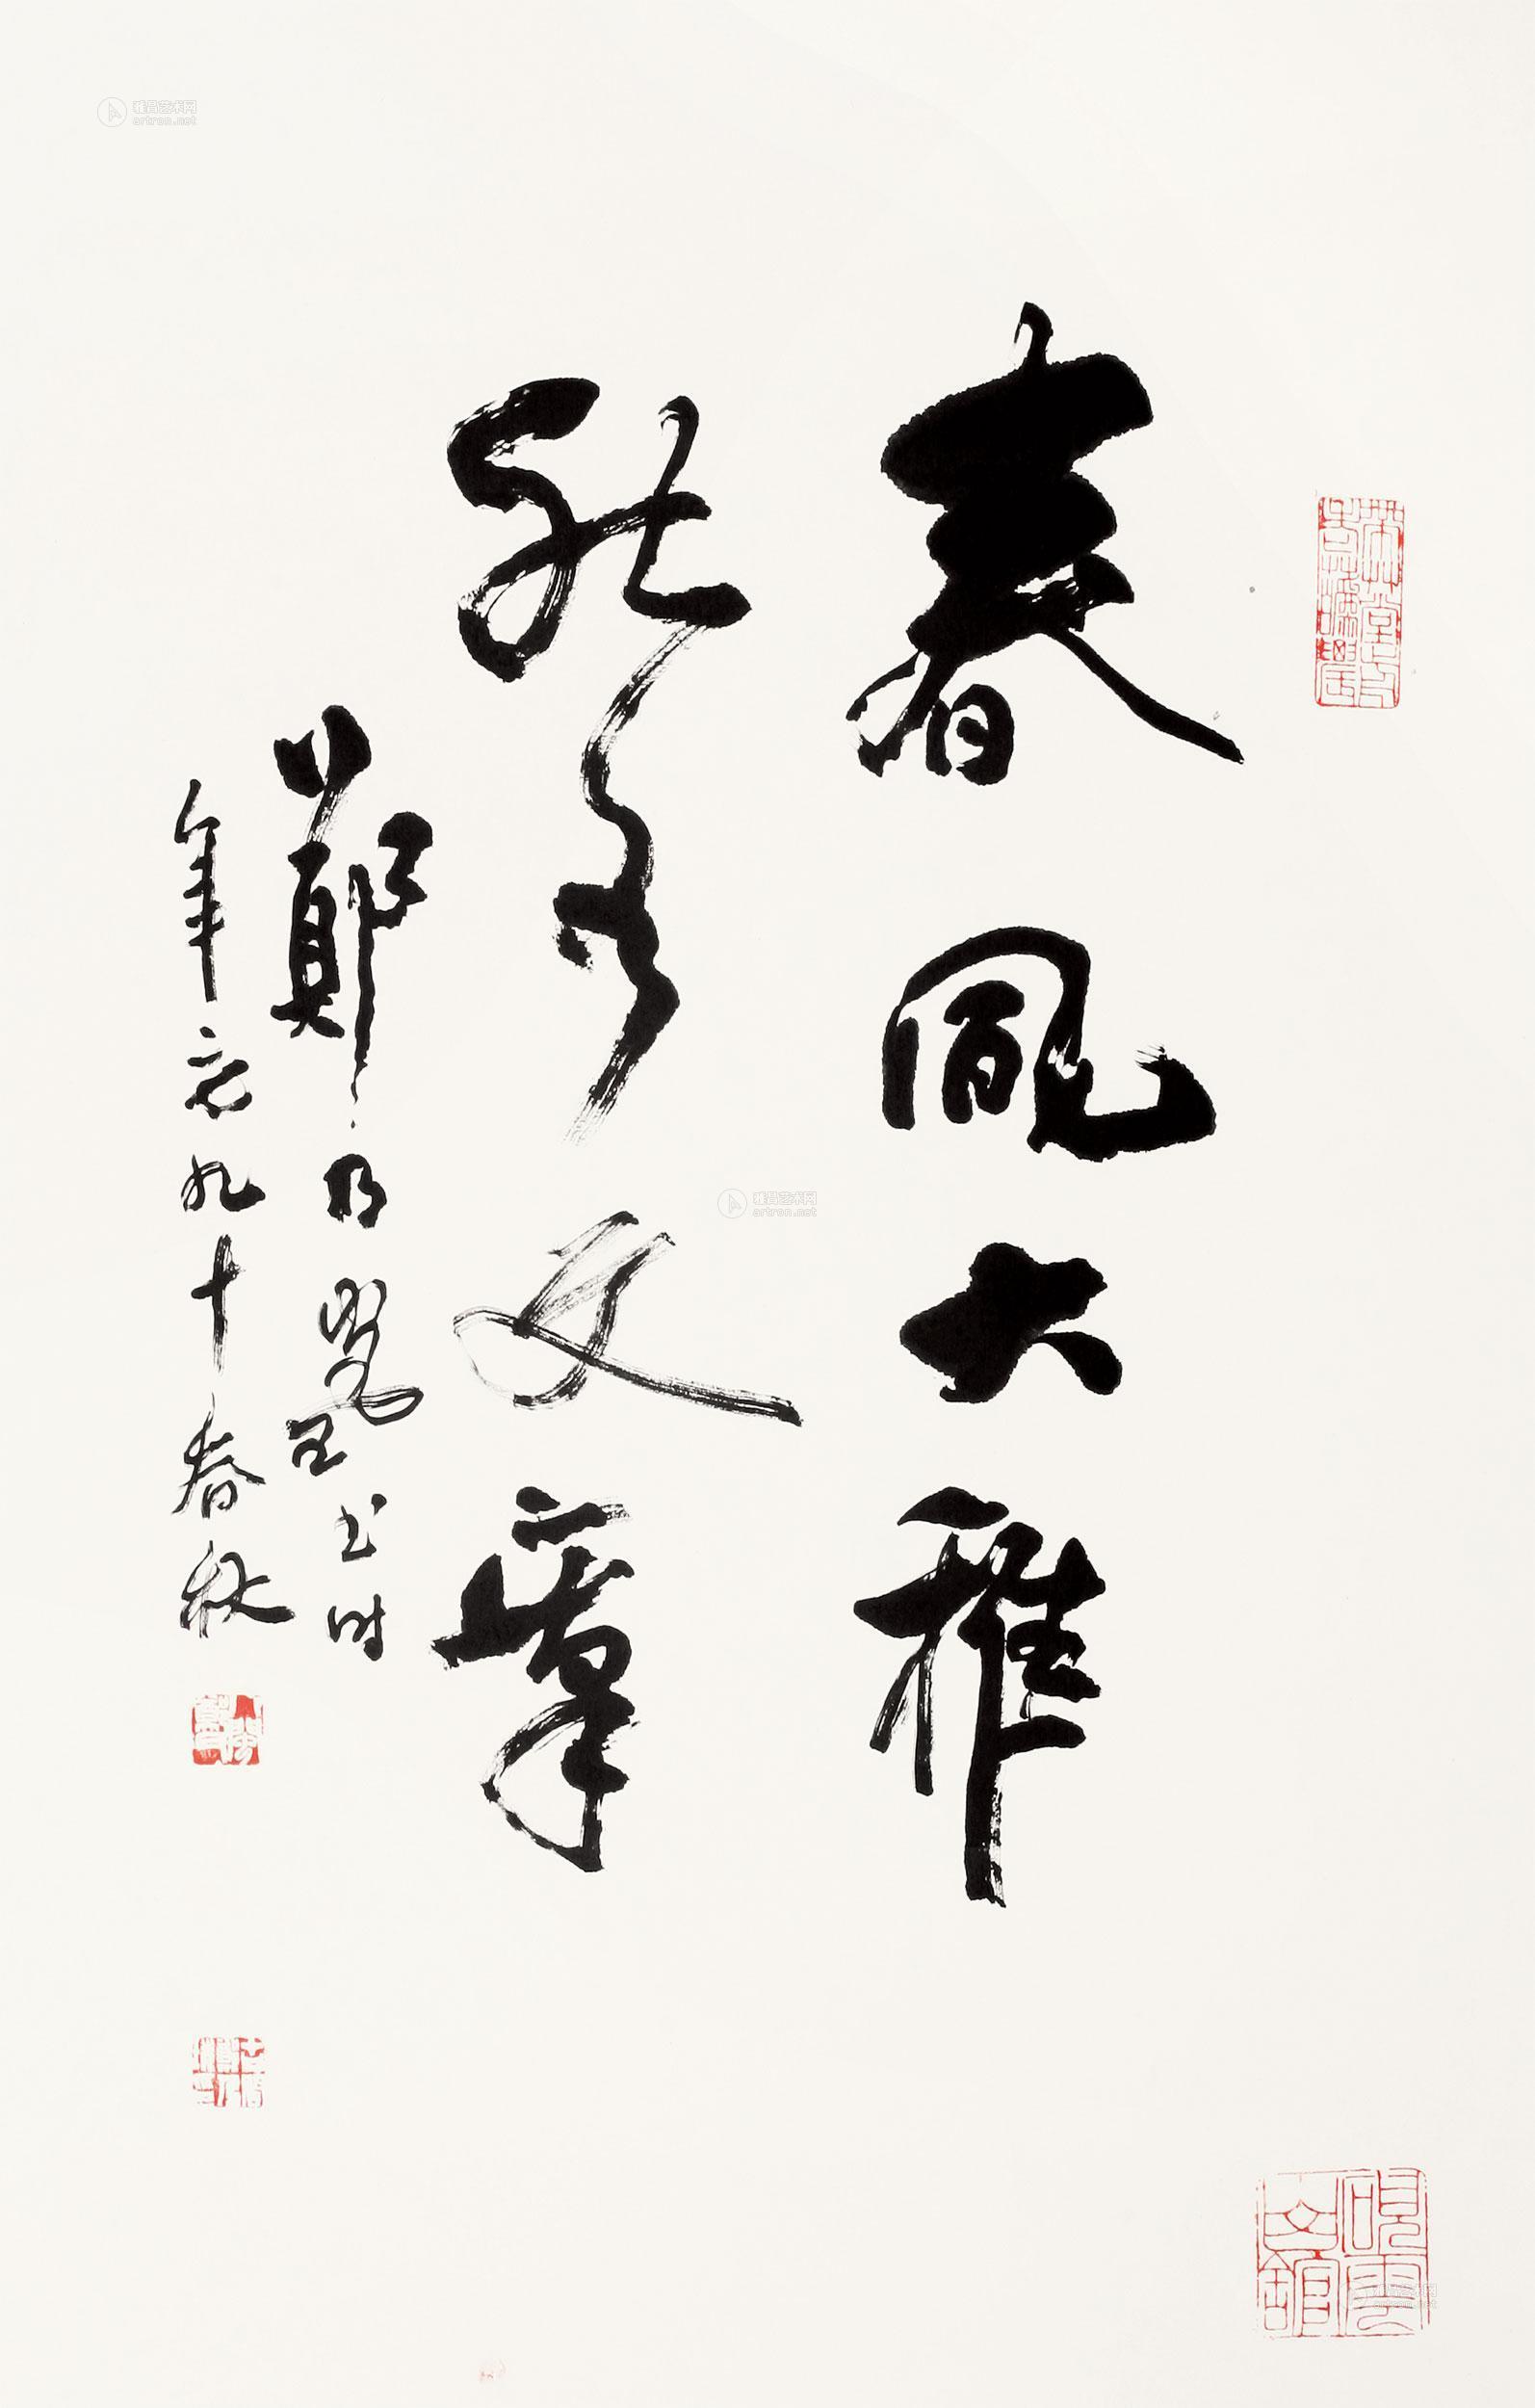 春風大雅
秋水文章
鄭乃珖书时
年六九十春秋
雅昌艺术网
artron.net
雅昌艺术网
artron.net
砚云山馆